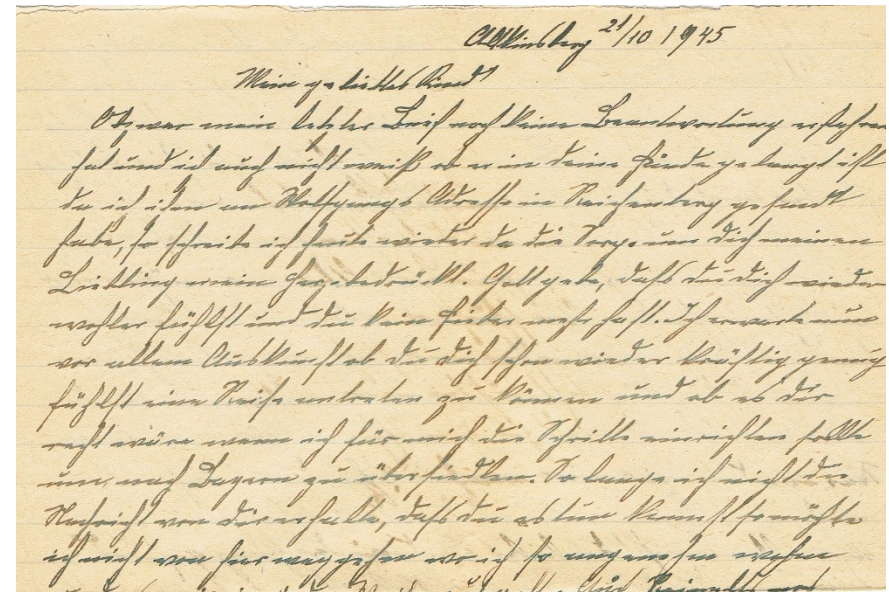 21/10 1945
Mein geliebtes Kind!
Obzwar mein letzter Brief noch keine Beantwortung erfahren
hat und ich auch nicht weiß ob er in deine Hände gelangt ist
da ich ihn an Wolfgangs Adresse in Reichenberg gesandt
habe, so schreibe ich heute wieder da die Sorge um Dich meinen
Liebling mein Herz bedrückt. Gott gebe, dass du dich wieder
wohler fühlst und du kein Fieber mehr hast. Ich erwarte nun
vor allem Auskunft ob du dich schon wieder kräftig genug
fühlst eine Reise antreten zu können und ob es dir
recht wäre wenn ich für mich die Schritte einrichten sollte
um nach Bayern zu übersiedlen. So lange ich nicht die
Nachricht von dir erhalte, dass du es tun kannst so möchte
ich nicht von hier weggehen wo ich so angenehm wohne